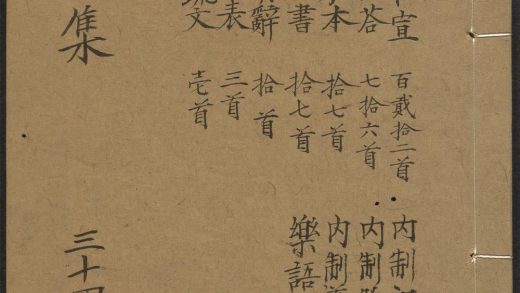 宣 百貳拾二首 内制
荅 七拾六首 内制
本 拾七首 内制
書 拾七首 樂語
辭 拾首
表 三首
文 壱首
集 三十